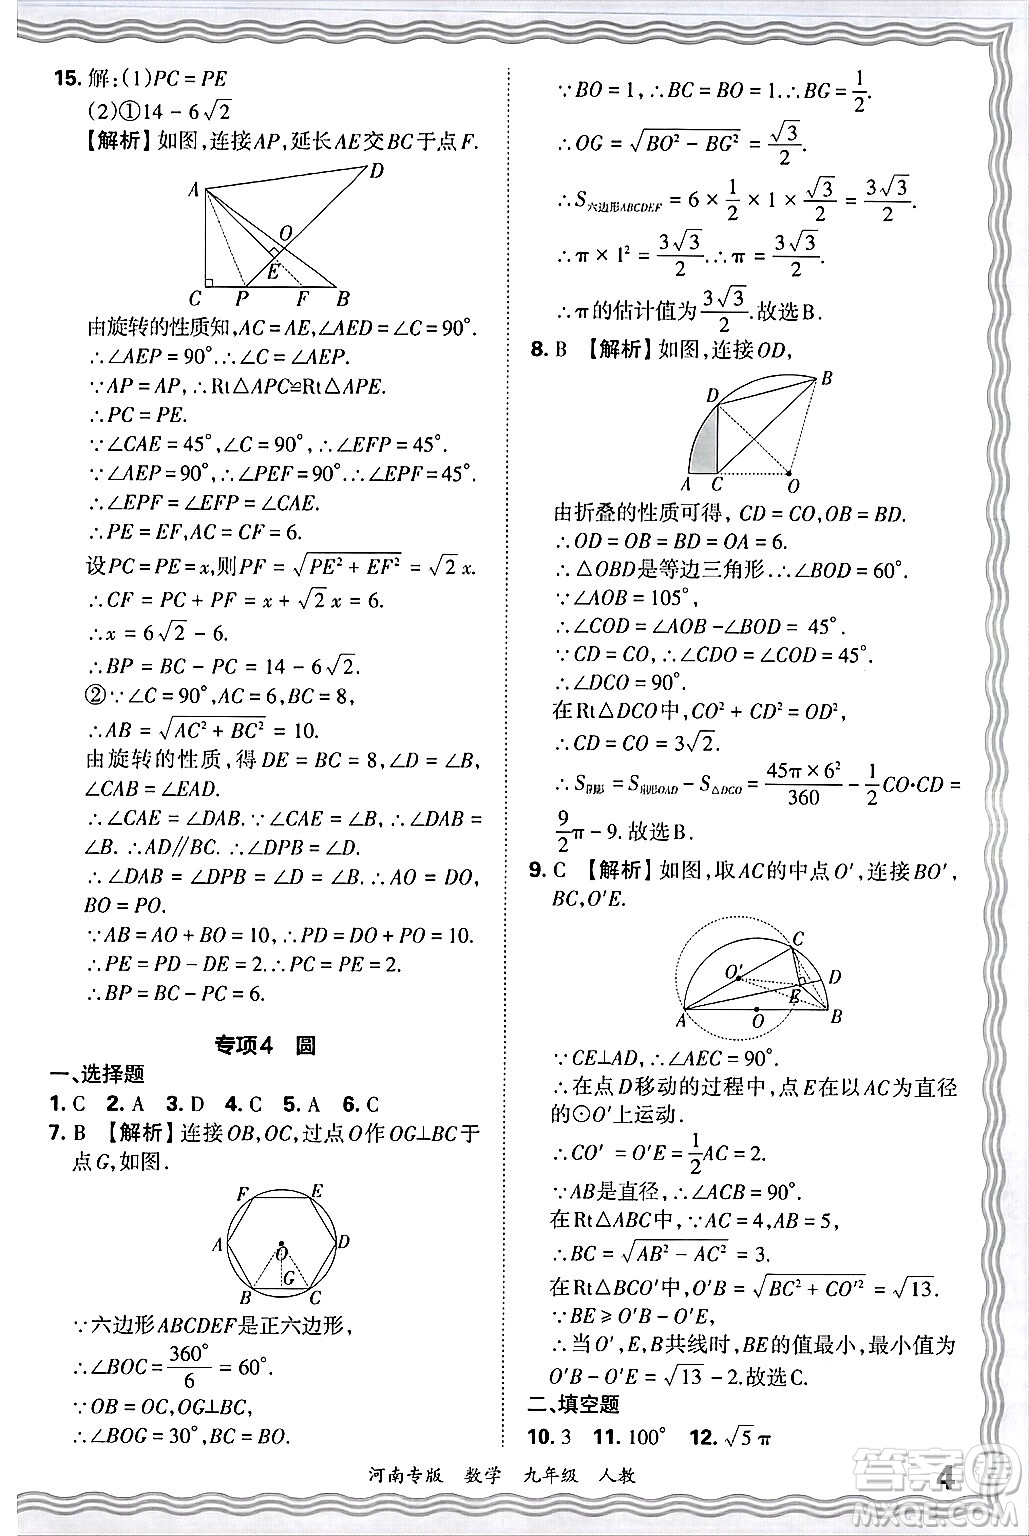 15. 解:(1)PC = PE
(2)①14 - 6√2
【解析】如图,连接AP,延长AE交BC于点F.
A D O E C P F B
由旋转的性质知,AC = AE,∠AED = ∠C = 90°.
∴∠AEP = 90°.∴∠C = ∠AEP.
∵AP = AP,∴Rt△APC≌Rt△APE.
∴PC = PE.
∵∠CAE = 45°,∠C = 90°,∴∠EFP = 45°.
∵∠AEP = 90°,∴∠PEF = 90°.∴∠EPF = 45°.
∴∠EPF = ∠EFP = ∠CAE.
∴PE = EF,AC = CF = 6.
设PC = PE = x,则PF = √(PE² + EF²) = √2x.
∴CF = PC + PF = x + √2x = 6.
∴x = 6√2 - 6.
∴BP = BC - PC = 14 - 6√2.
②∵∠C = 90°,AC = 6,BC = 8,
∴AB = √(AC² + BC²) = 10.
由旋转的性质,得DE = BC = 8,∠D = ∠B,
∠CAB = ∠EAD.
∴∠CAE = ∠DAB.∵∠CAE = ∠B,∴∠DAB =
∠B.∴AD∥BC.∴∠DPB = ∠D.
∴∠DAB = ∠DPB = ∠D = ∠B.∴AO = DO,
BO = PO.
∵AB = AO + BO = 10,∴PD = DO + PO = 10.
∴PE = PD - DE = 2.∴PC = PE = 2.
∴BP = BC - PC = 6.
专项4 圆
一、选择题
1. C 2. A 3. D 4. C 5. A 6. C
7. B 【解析】连接OB,OC,过点O作OG⊥BC于
点G,如图.
F E A O D G B C
∵六边形ABCDEF是正六边形,
∴∠BOC = 360°/6 = 60°.
∵OB = OC,OG⊥BC,
∴∠BOG = 30°,BC = BO.
∵BO = 1,∴BC = BO = 1.∴BG = 1/2.
∴OG = √(BO² - BG²) = √3/2.
∴S六边形ABCDEF = 6 × 1/2 × 1 × √3/2 = 3√3/2.
∴π × 1² = 3√3/2.∴π = 3√3/2.
∴π的估计值为3√3/2.故选B.
8. B 【解析】如图,连接OD,
D B A C O
由折叠的性质可得,CD = CO,OB = BD.
∴OD = OB = BD = OA = 6.
∴△OBD是等边三角形.∴∠BOD = 60°.
∵∠AOB = 105°,
∴∠COD = ∠AOB - ∠BOD = 45°.
∵CD = CO,∴∠CDO = ∠COD = 45°.
∴∠DCO = 90°.
在Rt△DCO中,CO² + CD² = OD²,
∴CD = CO = 3√2.
∴S阴影 = S扇形OAD - S△DCO = 45π × 6²/360 - 1/2 CO·CD =
9/2π - 9.故选B.
9. C 【解析】如图,取AC的中点O′,连接BO′,
BC,O′E.
C O′ D E A O B
∵CE⊥AD,∴∠AEC = 90°.
∴在点D移动的过程中,点E在以AC为直径
的⊙O′上运动.
∴CO′ = O′E = 1/2 AC = 2.
∵AB是直径,∴∠ACB = 90°.
在Rt△ABC中,∵AC = 4,AB = 5,
∴BC = √(AB² - AC²) = 3.
在Rt△BCO′中,O′B = √(BC² + CO′²) = √13.
∵BE ≥ O′B - O′E,
∴当O′,E,B共线时,BE的值最小,最小值为
O′B - O′E = √13 - 2.故选C.
二、填空题
10. 3 11. 100° 12. √5π
河南专版 数学 九年级 人教
4
答案圈
MXQE.COM